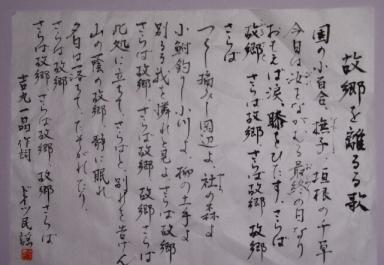 故郷を離るる歌
園の小百合、撫子、垣根の千草
今日は汝をながむる最終の日なり
おもえば涙、膝をひたす、さらば
故郷、さらば故郷、さらば故郷
さらば
つくし摘みし岡辺よ、社の森よ
小鮒釣りし小川よ、柳の土手よ
別るる我を憐れと見よ、さらば故郷
さらば故郷、さらば故郷、さらば
此処に立ちて、さらばと、別れを告げん
山の蔭の故郷、静に眠れ
夕日は落ちて、たそがれたり
さらば故郷
さらば故郷、さらば故郷、故郷さらば
吉丸一昌作詞 ドイツ民謡